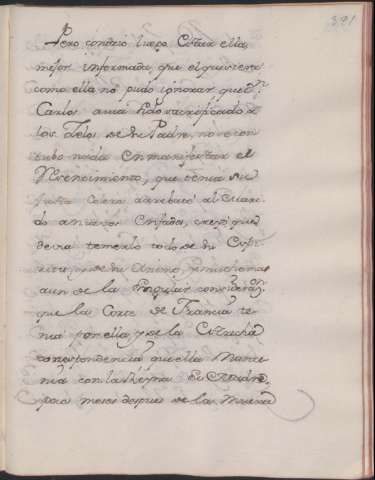 391
Pero conoció luego estar ella
mejor informada, que el quisiera
como ella no pudo ignorar que Dn.
Carlos avia sido sacrificado a
los Zelos de su Padre, no
tubo nada en manifestar el
sentimiento, que tenia su
justa colera arrebató al
do a nuevos enfados, creyó que
devia temerlo todo de su
y de su animo, y mucho mas
aun de la singular considerazn.
que la Corte de Francia te
nia por ella y de la estrecha
correspondencia que ella mante
nia con la Reyna su Madre,
pocos meses despues de la Muerte